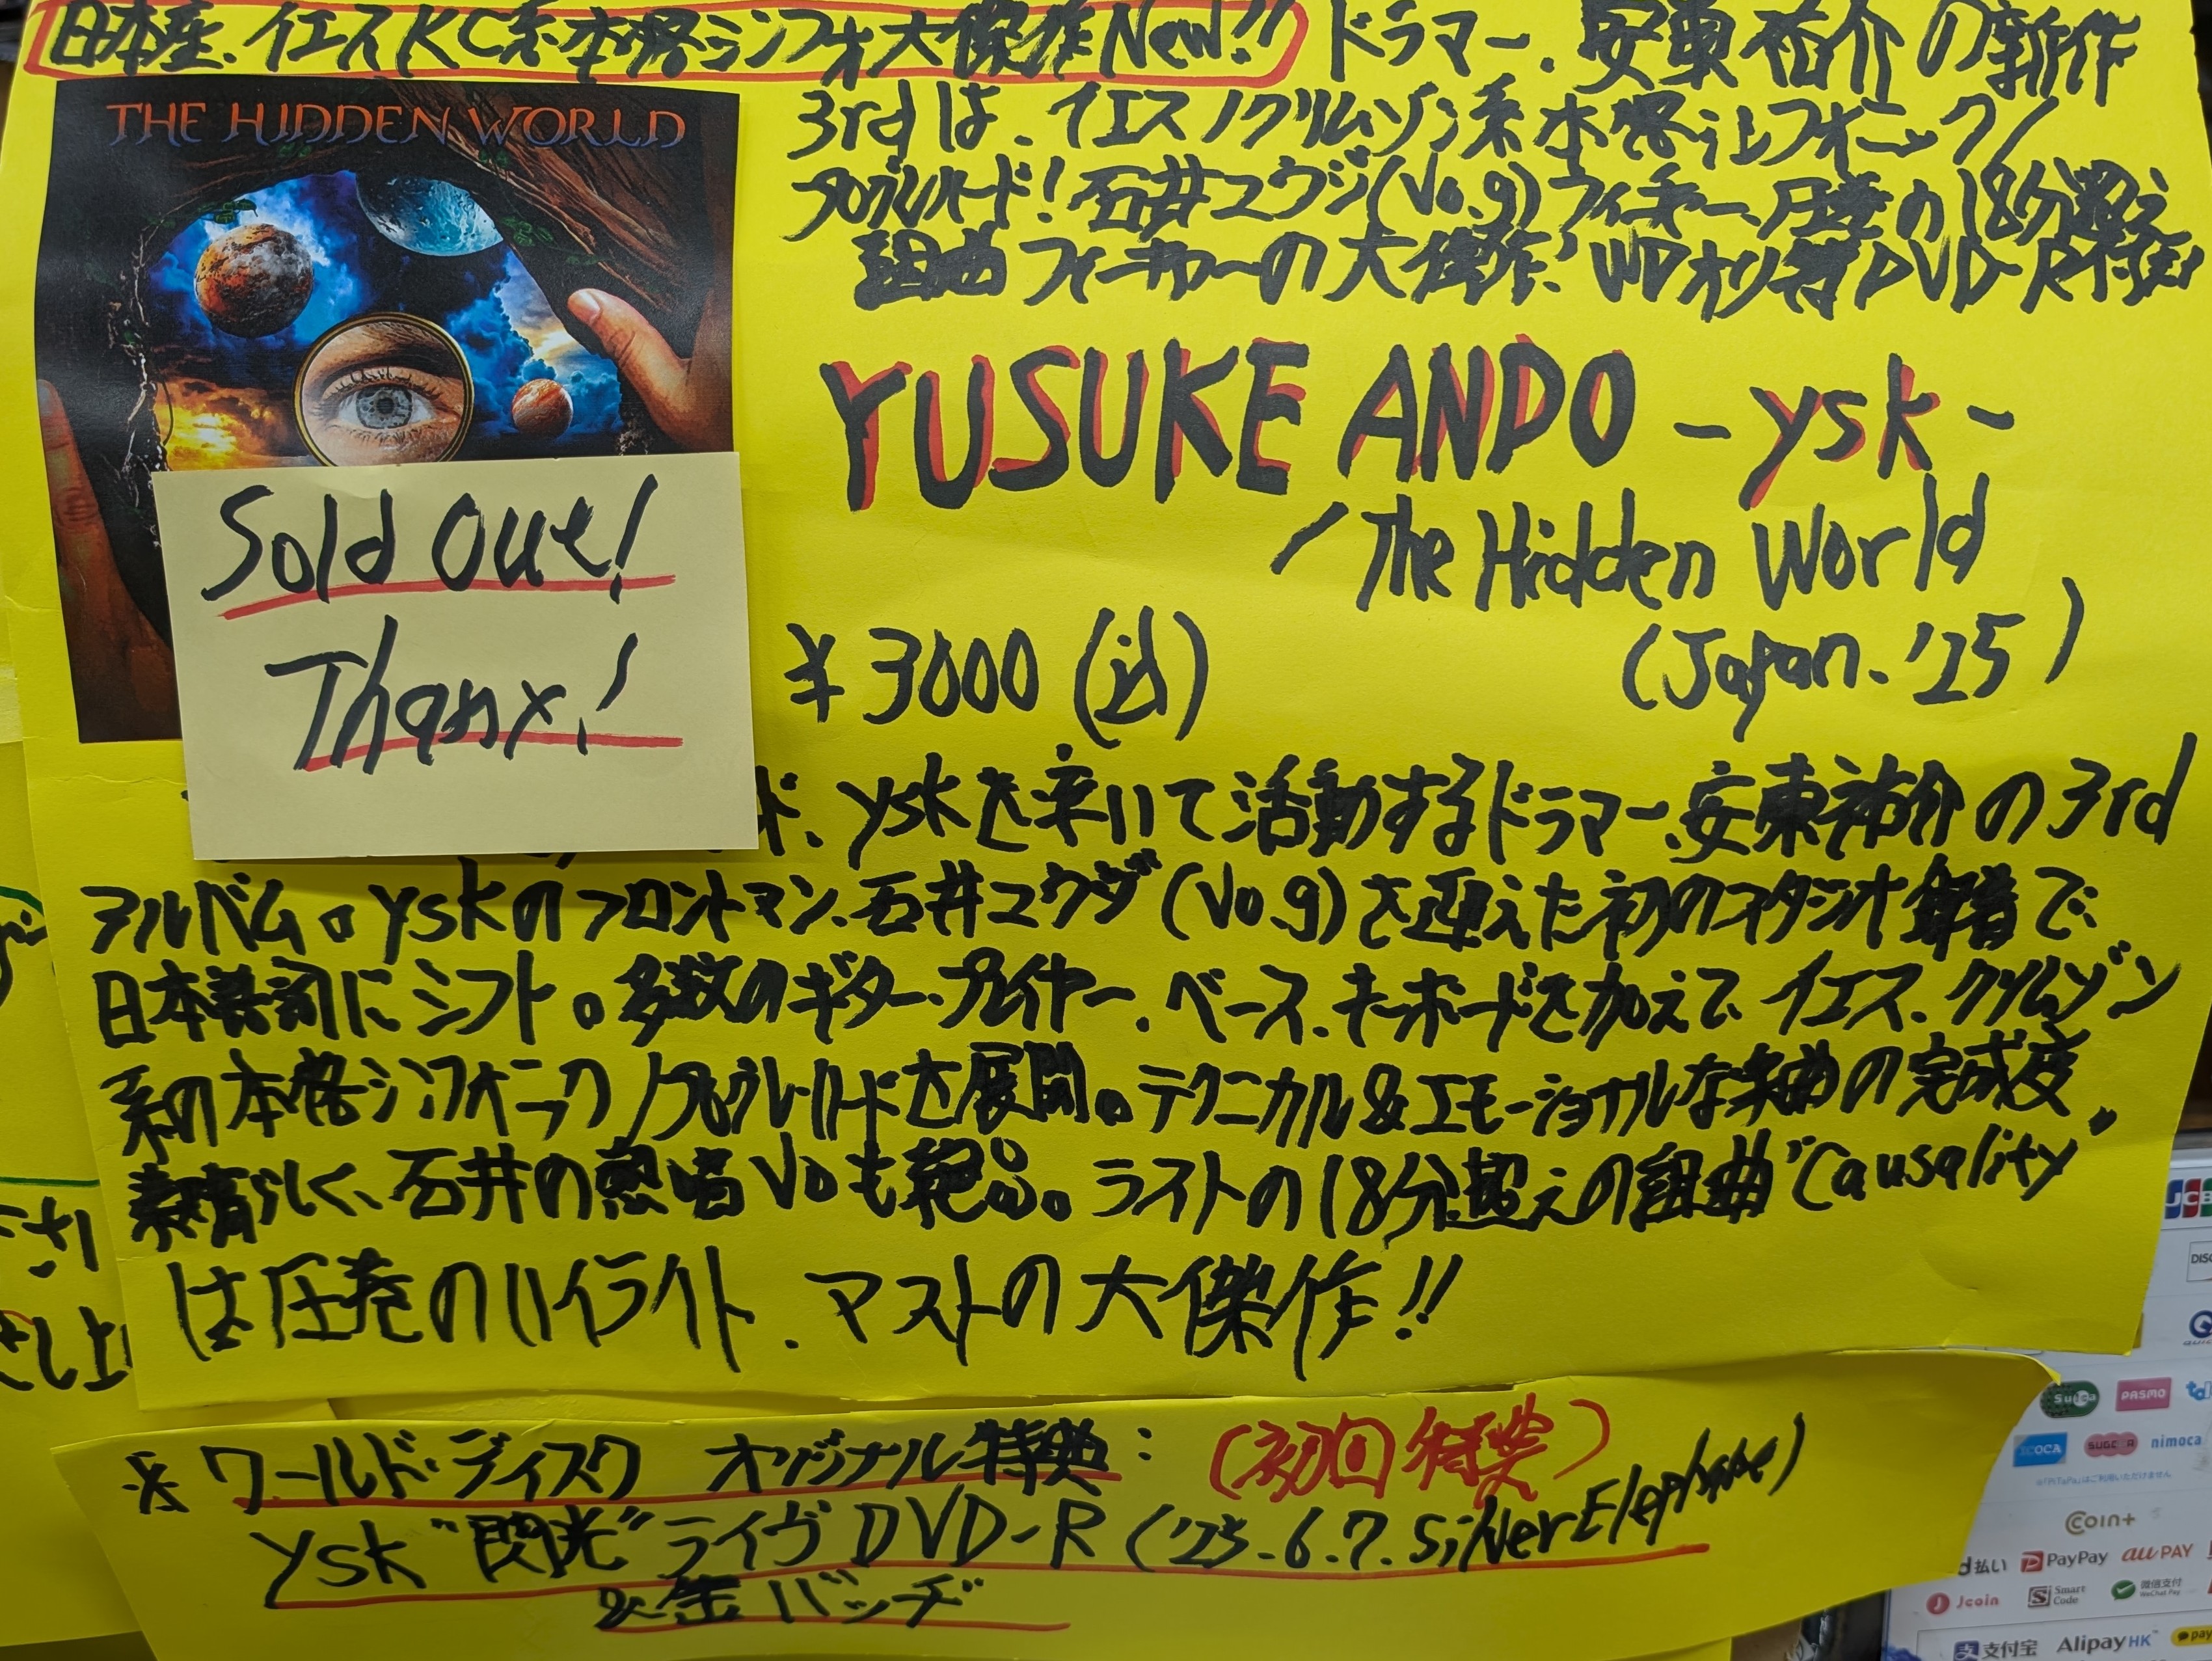 日本産.イエスKC系本格シンフォ大傑作New!! ドラマー.安東祐介の新作
3rdは、イエス/クリムゾン系本格シンフォニック/
プログレハード!石井コウジ(Vo.g)フィーチャー、圧巻の18分超え
組曲フィーチャーの大傑作.WDオリ特DVD-R付
THE HIDDEN WORLD
YUSUKE ANDO -ysk-
/The Hidden World
¥3000(込)
(Japan.'25)
Sold Out!
Thanx!
ド、yskを率いて活動するドラマー、安東祐介の3rd
アルバム。yskのフロントマン、石井コウジ(Vo.g)を迎えた初のスタジオ録音で
日本語詞にシフト。多数のギター・プレイヤー、ベース、キーボードを加えて、イエス、クリムゾン
系の本格シンフォニック/プログレ・ハードを展開。テクニカル&エモーショナルな楽曲の完成度
素晴らしく、石井の熱唱Voも絶品。ラストの18分超えの組曲"Causality"
は圧巻のハイライト.マストの大傑作!!
※ワールド・ディスク オリジナル特典: (初回特典)
ysk "閃光" ライヴDVD-R ('25.6.7.Silver Elephant)
&缶バッヂ
JCB
Suica
PASMO
ICOCA
SUGOCA
nimoca
※「PiTaPa」はご利用いただけません
Coin+
d払い PayPay au PAY
Jcoin Smart Code 微信支付 WeChat Pay
支付宝 Alipay HK pay